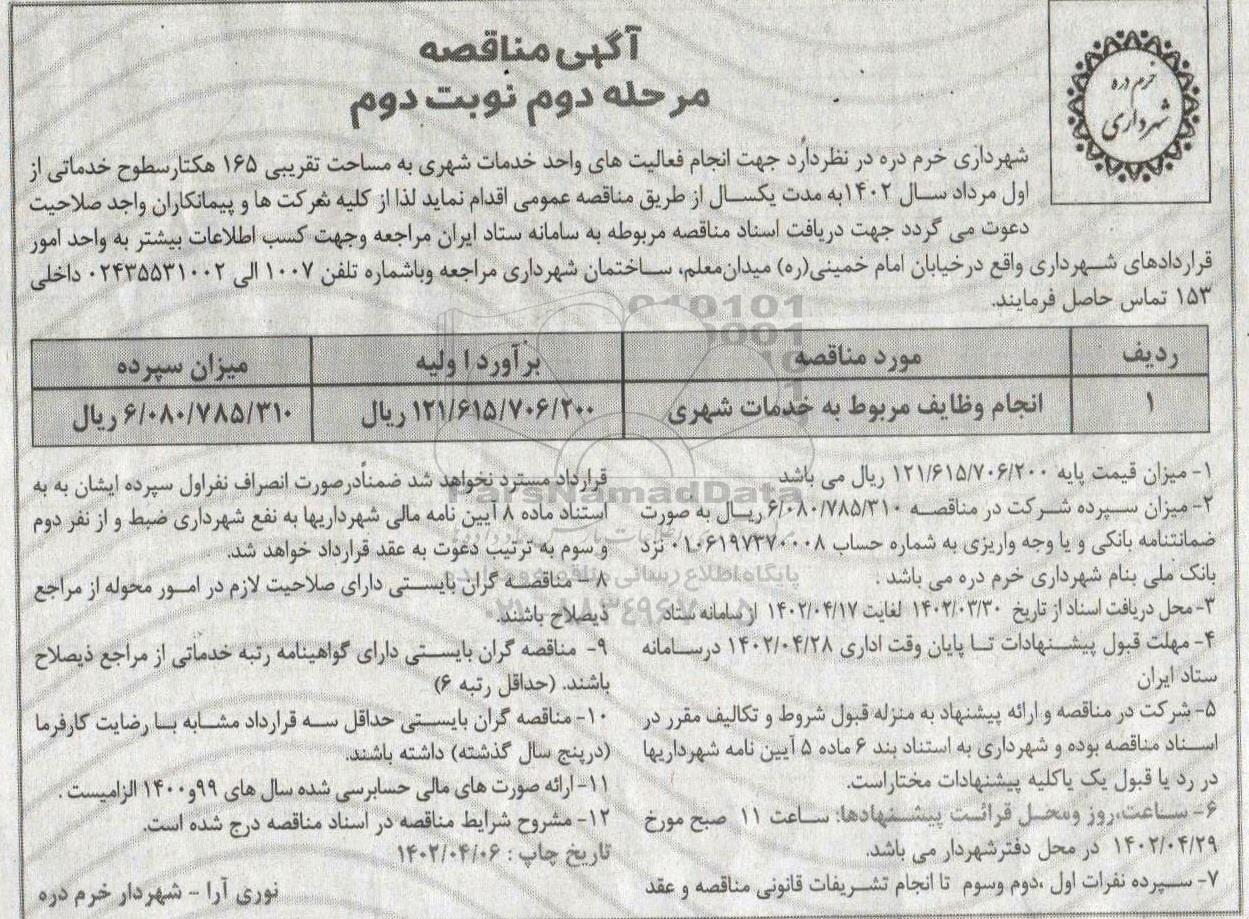 آگهی مناقصه
مرحله دوم نوبت دوم
خرم دره
شهرداری
شهرداری خرم دره در نظردارد جهت انجام فعالیت های واحد خدمات شهری به مساحت تقریبی ۱۶۵ هکتارسطوح خدماتی از
اول مرداد سال ۱۴۰۲به مدت یکسال از طریق مناقصه عمومی اقدام نماید لذا از کلیه شرکت ها و پیمانکاران واجد صلاحیت
دعوت می گردد جهت دریافت اسناد مناقصه مربوطه به سامانه ستاد ایران مراجعه وجهت کسب اطلاعات بیشتر به واحد امور
قراردادهای شهرداری واقع درخیابان امام خمینی(ره) میدان‌معلم، ساختمان شهرداری مراجعه وباشماره تلفن ۱۰۰۷ الی ۰۲۴۳۵۵۳۱۰۰۲ داخلی
۱۵۳ تماس حاصل فرمایند.
ردیف مورد مناقصه برآورد اولیه میزان سپرده
۱ انجام وظایف مربوط به خدمات شهری ۱۲۱/۶۱۵/۷۰۶/۲۰۰ ریال ۶/۰۸۰/۷۸۵/۳۱۰ ریال
۱- میزان قیمت پایه ۱۲۱/۶۱۵/۷۰۶/۲۰۰ ریال می باشد
۲- میزان سپرده شرکت در مناقصه ۶/۰۸۰/۷۸۵/۳۱۰ ریال به صورت
ضمانتنامه بانکی و یا وجه واریزی به شماره حساب ۰۱۰۶۱۹۷۳۷۰۰۰۸ نزد
بانک ملی بنام شهرداری خرم دره می باشد .
۳- محل دریافت اسناد از تاریخ ۱۴۰۲/۰۳/۳۰ لغایت ۱۴۰۲/۰۴/۱۷ از سامانه ستاد
۴- مهلت قبول پیشنهادات تا پایان وقت اداری ۱۴۰۲/۰۴/۲۸ درسامانه
ستاد ایران
۵- شرکت در مناقصه و ارائه پیشنهاد به منزله قبول شروط و تکالیف مقرر در
اسناد مناقصه بوده و شهرداری به استناد بند ۶ ماده ۵ آیین نامه شهرداریها
در رد یا قبول یک یاکلیه پیشنهادات مختاراست.
۶- ساعت،روز ومحل قرائت پیشنهادها: ساعت ۱۱ صبح مورخ
۱۴۰۲/۰۴/۲۹ در محل دفترشهردار می باشد.
۷- سپرده نفرات اول ،دوم وسوم تا انجام تشریفات قانونی مناقصه و عقد
قرارداد مسترد نخواهد شد ضمناًدرصورت انصراف نفراول سپرده ایشان به به
استناد ماده ۸ آیین نامه مالی شهرداریها به نفع شهرداری ضبط و از نفر دوم
و سوم به ترتیب دعوت به عقد قرارداد خواهد شد.
۸- مناقصه گران بایستی دارای صلاحیت لازم در امور محوله از مراجع
ذیصلاح باشند.
۹- مناقصه گران بایستی دارای گواهینامه رتبه خدماتی از مراجع ذیصلاح
باشند. (حداقل رتبه ۶)
۱۰- مناقصه گران بایستی حداقل سه قرارداد مشابه با رضایت کارفرما
(درپنج سال گذشته) داشته باشند.
۱۱- ارائه صورت های مالی حسابرسی شده سال های ۹۹و۱۴۰۰ الزامیست .
۱۲- مشروح شرایط مناقصه در اسناد مناقصه درج شده است.
تاریخ چاپ : ۱۴۰۲/۰۴/۰۶
نوری آرا - شهردار خرم دره
ParsNamadData
پایگاه اطلاع رسانی مناقصه و مزایده